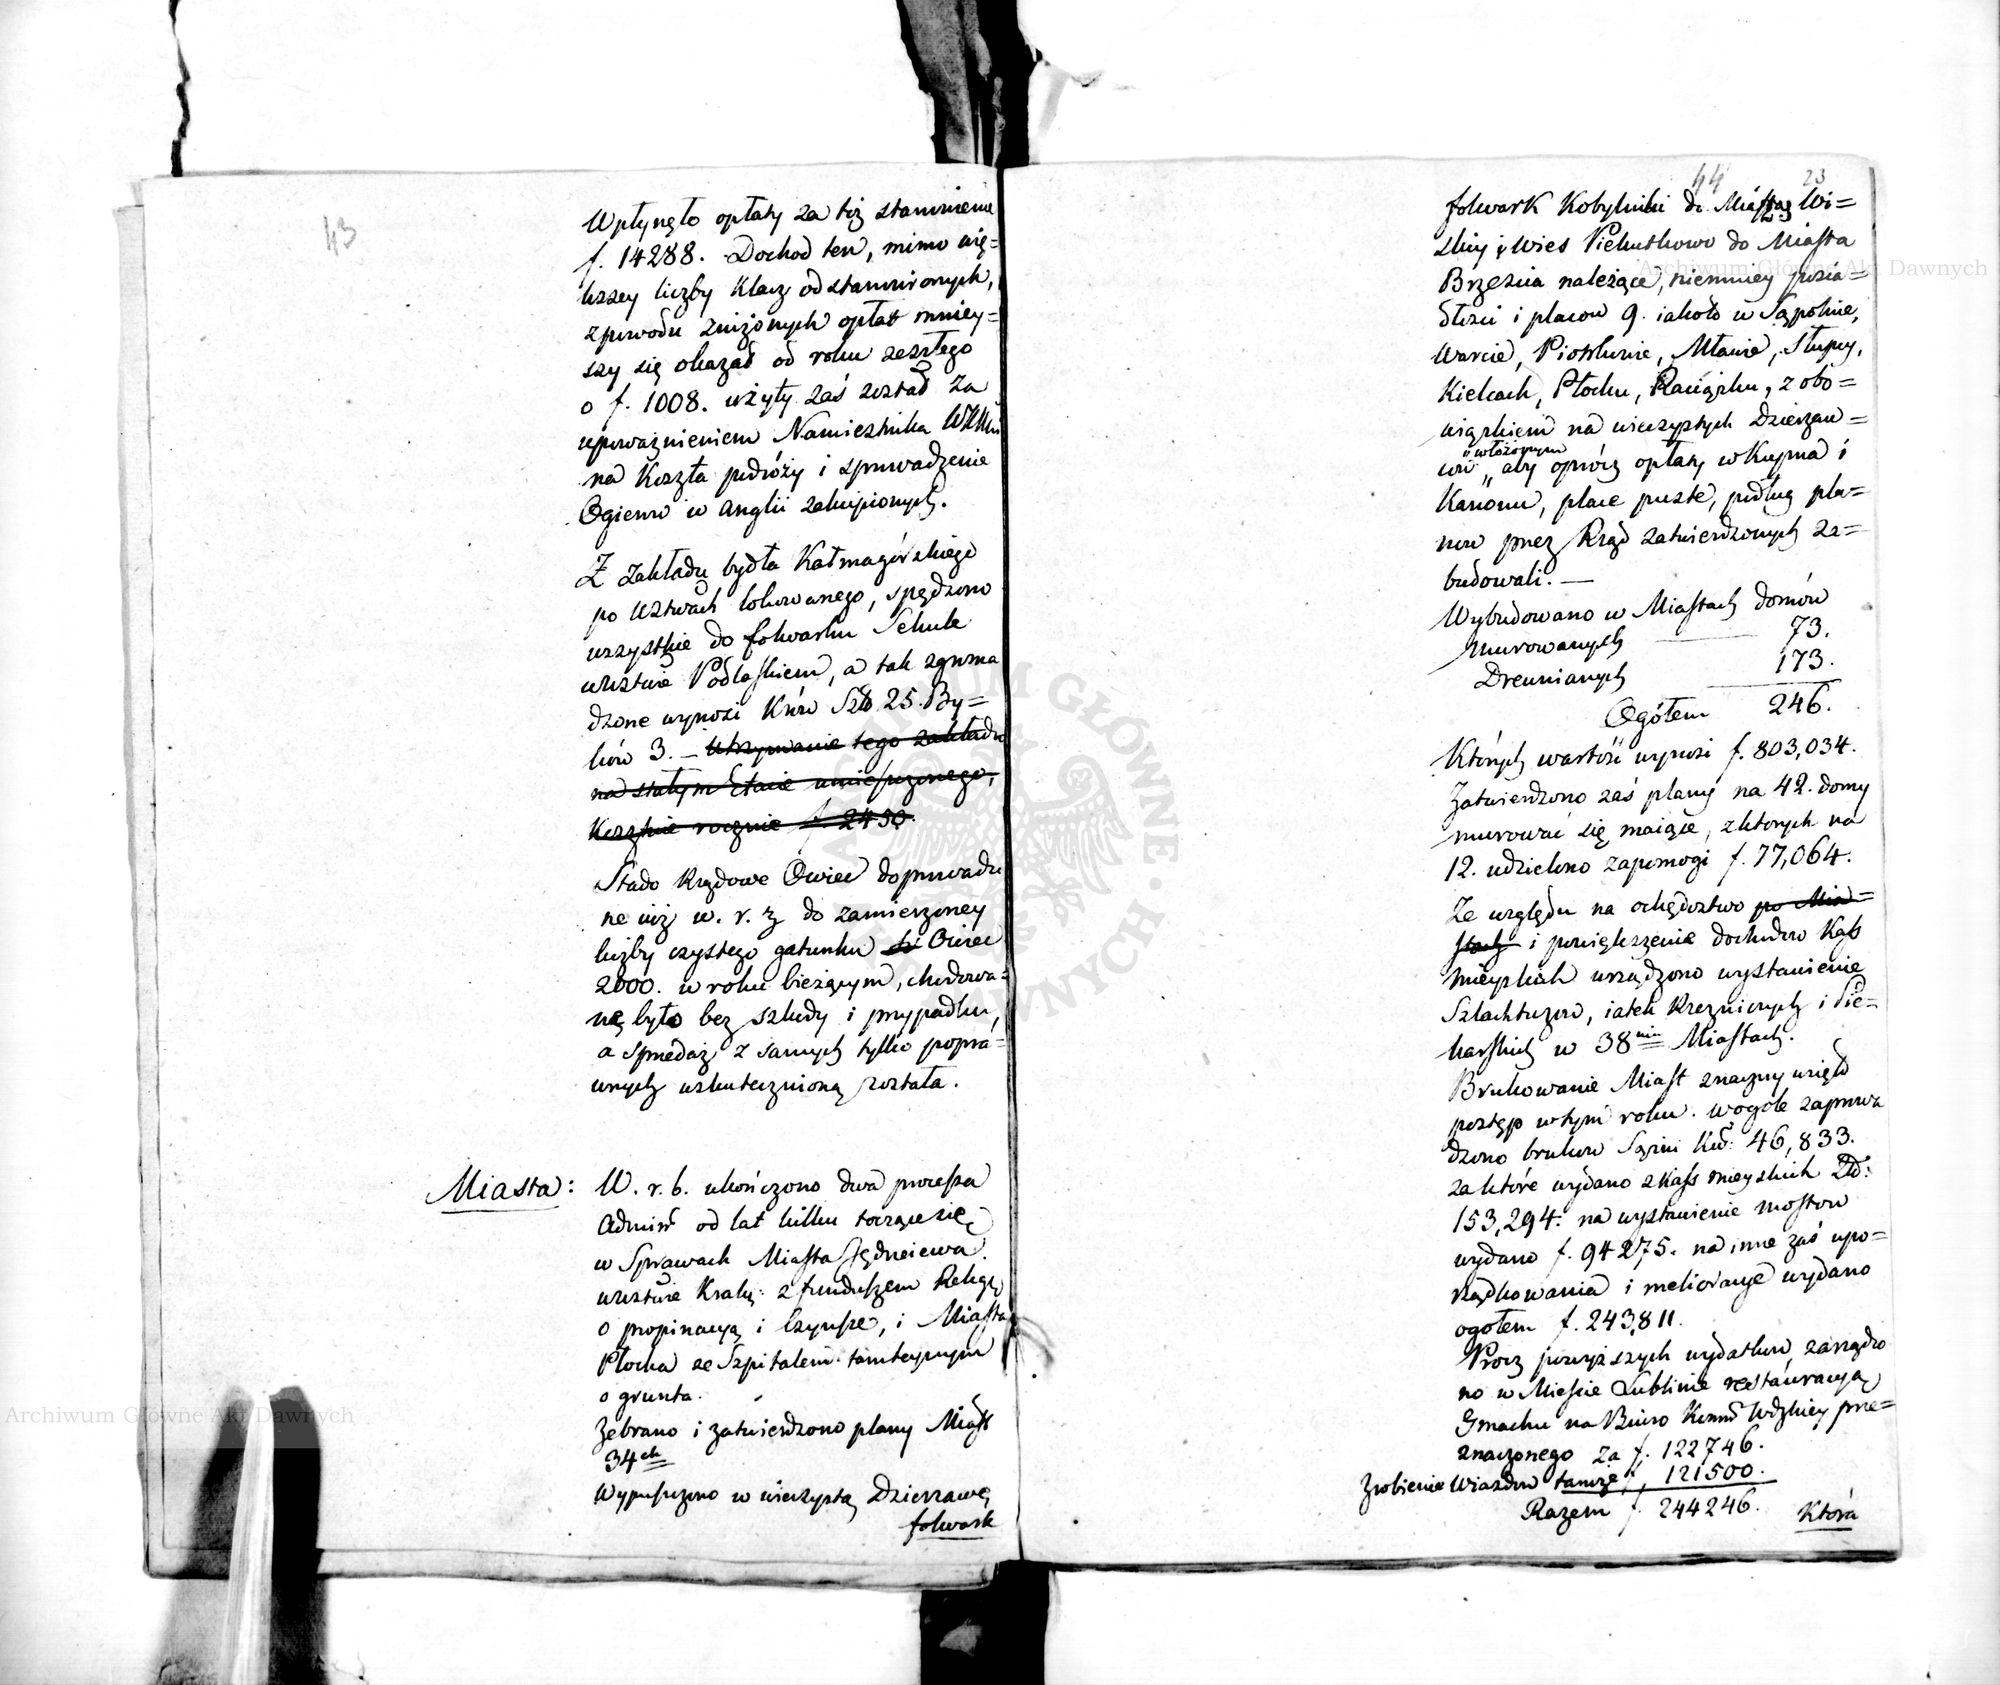 43
Wpłynęło opłaty za tóż stanowienie
f. 14288. Dochod ten, mimo wię=
kszey liczby Klacz odstanowionych,
zpowodu zniżonych opłat mniey=
szy się okazał od roku zeszłego
o f. 1008. użyty zaś został za
upoważnieniem Namiestnika
na Koszta podróży i sprowadzenie
Ogierow w Anglii zakupionych.
Z zakładu bydła Kałmagórskiego
po wztwach lokowanego, spędzono
wszystkie do folwarku Sekule
wwztwie Podlaskiem, a tak zgroma
dzone wynosi Krów Szt 25. By=
ków 3. – Utrzymanie tego zakładu
na stałym Etacie umieszczonego,
Kosztuie rocznie f. 2450.
Stado Rządowe Owiec doprowadzo
ne iuż w. r. z do zamierzoney
liczby czystego gatunku Owiec
2000. w roku bieżącym, chodowa=
ne było bez szkody i przypadku,
a sprzedaż z samych tylko popra=
wnych uskutecznioną została.
Miasta: W. r. b. ukończono dwa processa
Admin od lat kilku toczące się
w Sprawach Miasta Jędrzeiewa
wwztwie Krak: z funduszem Religy
o propinacyą i Czynsze, i Miasta
Płocka ze Szpitalem tamteyszym
o grunta.
Zebrano i zatwierdzono plany Miast
34ch
Wypuszczono w wieczystą Dzierzawę
folwark
44 23
folwark Kobylniki do Miasta Wi=
ślicy i Wieś Piekutkowo do Miasta
Brzescia należące, niemniey posia=
dłości i placow 9. iakoto w Sępolnie,
Warcie, Piotrkowie, Mławie, Słupcy,
Kielcach, Płocku, Raciążku, z obo=
wiązkiem na wieczystych Dzierzaw=
ców "włożonym" aby oprócz opłaty wkupna i
Kanonu, place puste, podług pla=
now przez Rząd zatwierdzonych za=
budowali. —
Wybudowano w Miastach domów
murowanych — 73.
Drewnianych 173.
Ogółem 246.
Których wartość wynosi f. 803,034.
Zatwierdzono zaś plany na 42. domy
murować się maiące, zktorych na
12. udzielono zapomogi f. 77,064.
Ze względu na ochędóztwo po Mia=
stach i powiększenie dochodow Kass
mieyskich urządzono wystawienie
Szlachtuzow, iatek Rzezniczych i Pie=
karskich w 38miu Miastach.
Brukowanie Miast znaczny wziął
postęp wtym roku. wogóle zaprowa
dzono brukow Sążni Kw: 46,833.
za które wydano zkass mieyskich Zł:
153,294. na wystawienie mostow
wydano f. 94275. na inne zaś upo=
rządkowania i melioracye wydano
ogołem f. 243,811.
Procz powyższych wydatkow, zarządzo
no w Mieście Lublinie restauracyą
Gmachu na Biuro Kommi Wdzkiey prze=
znaczonego za f. 122746.
Zrobienie Wiazdow tamże f. 121500.
Razem f. 244246.
Która
Archiwum Główne Akt Dawnych
Archiwum Główne Akt Dawnych